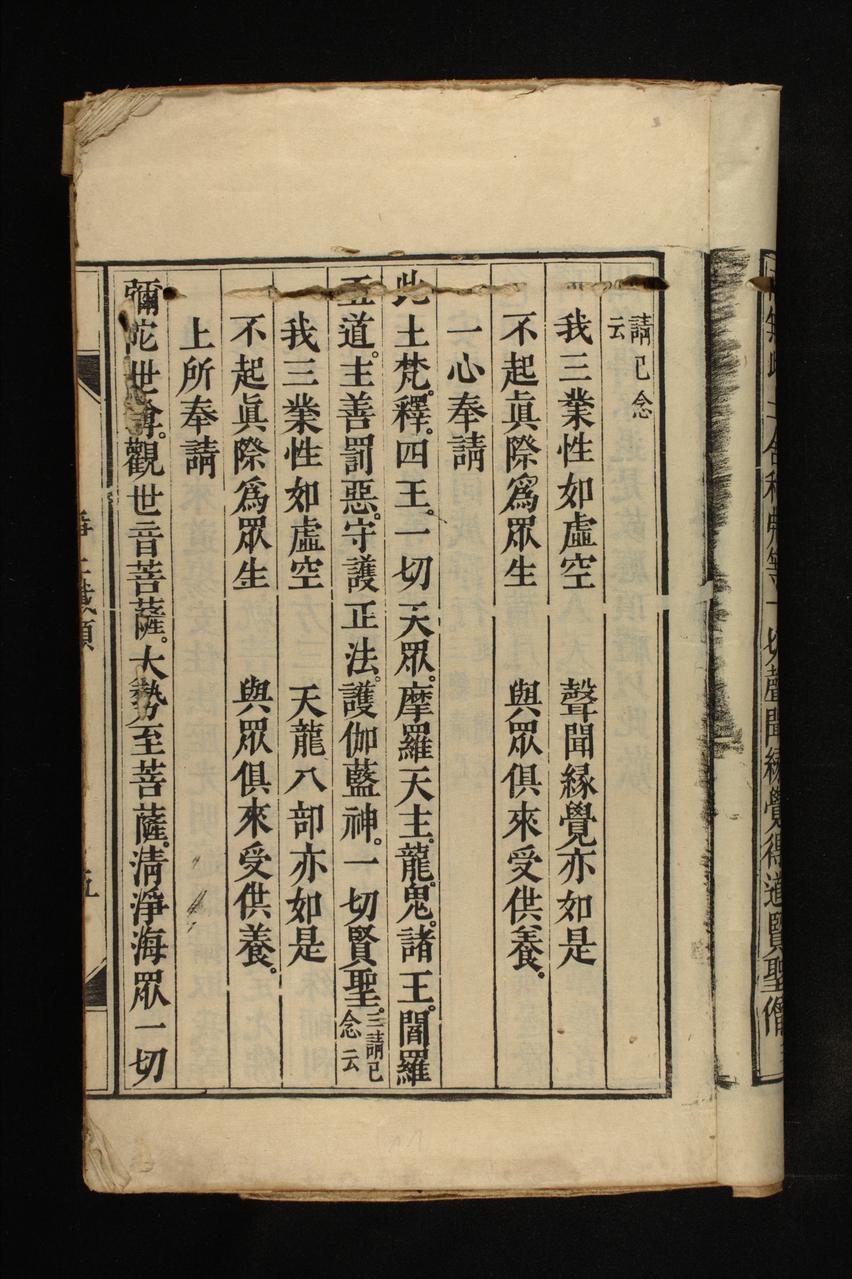 請已念
云
我三業性如虛空　聲聞緣覺亦如是
不起眞際爲眾生　與眾俱來受供養。
一心奉請
此土梵。釋。四王。一切天眾。摩羅天主。龍。鬼。諸王。閻羅
五道。主善罰惡。守護正法。護伽藍神。一切賢聖。三請已念云
我三業性如虛空　天龍八部亦如是
不起眞際爲眾生　與眾俱來受供養。
上所奉請
彌陀世尊。觀世音菩薩。大勢至菩薩。清淨海眾一切
五
一切聲聞緣覺得道賢聖僧